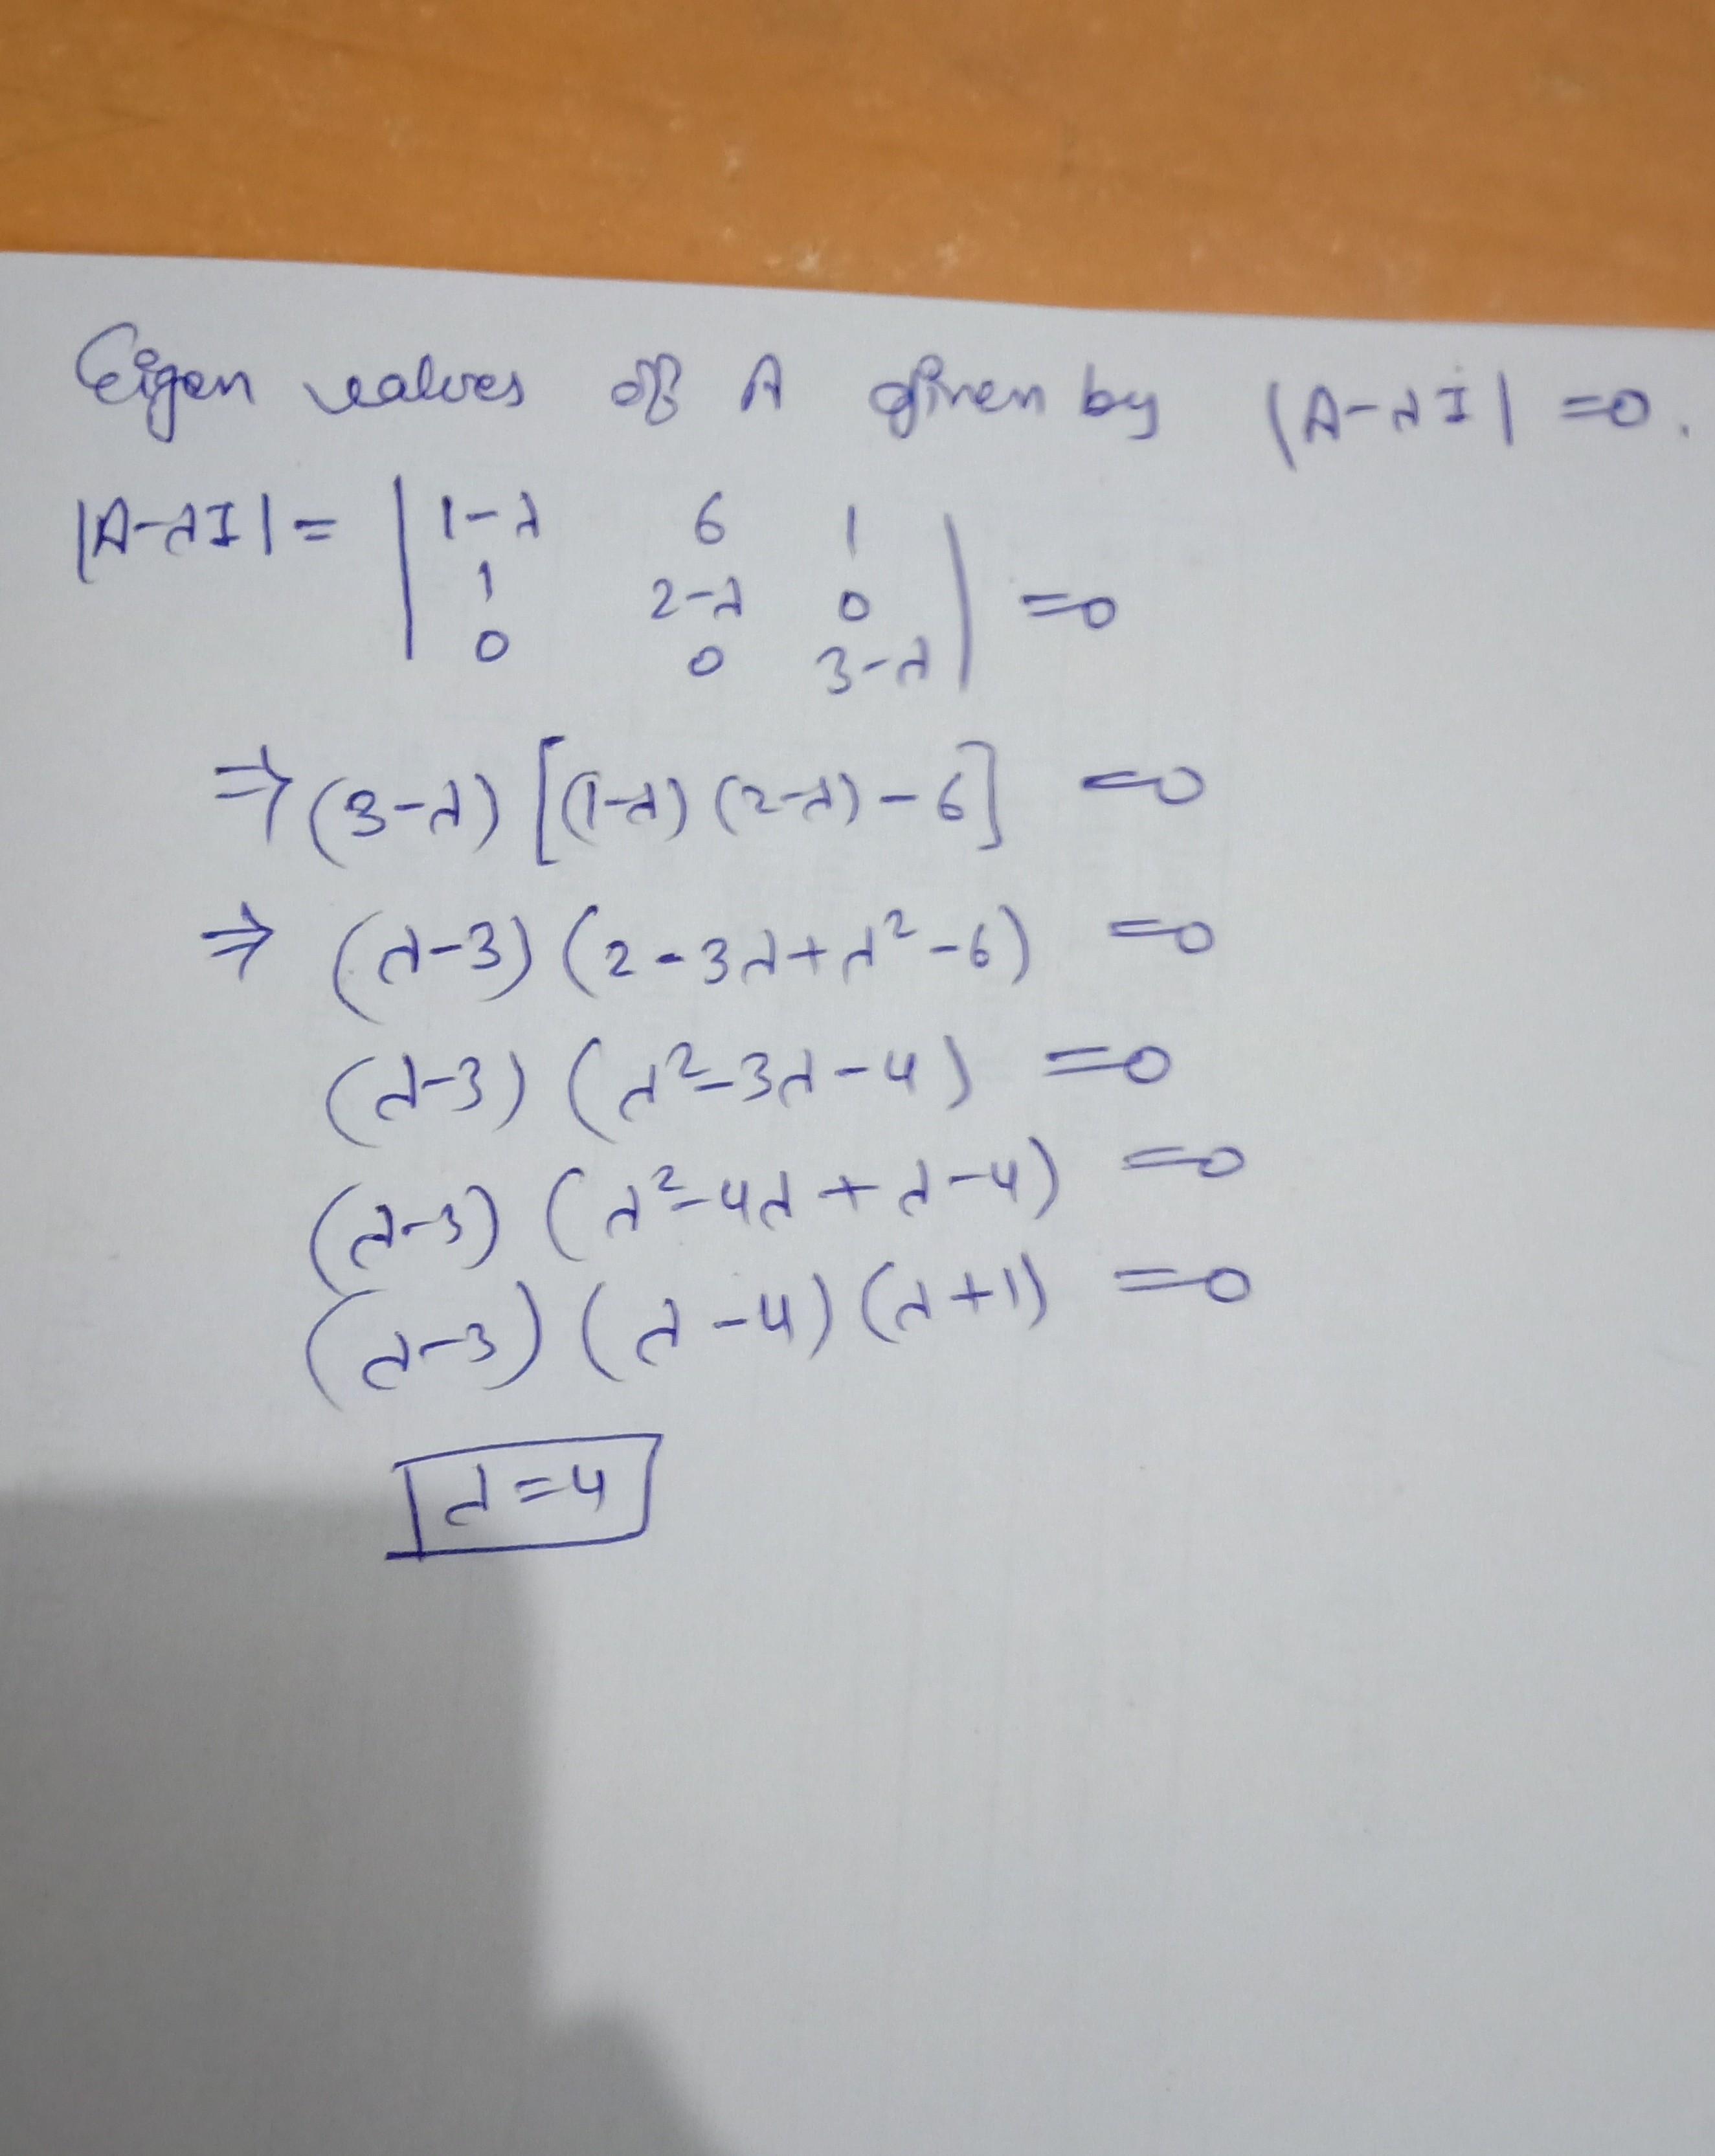 Eigen values of A given by |A-λI| =0.
|A-λI| = | 1-λ 6 1
1 2-λ 0 | =0
0 0 3-λ
⇒ (3-λ) [(1-λ) (2-λ) - 6] =0
⇒ (λ-3) (2-3λ+λ²-6) =0
(λ-3) (λ²-3λ-4) =0
(λ-3) (λ²-4λ+λ-4) =0
(λ-3) (λ-4) (λ+1) =0
λ=4